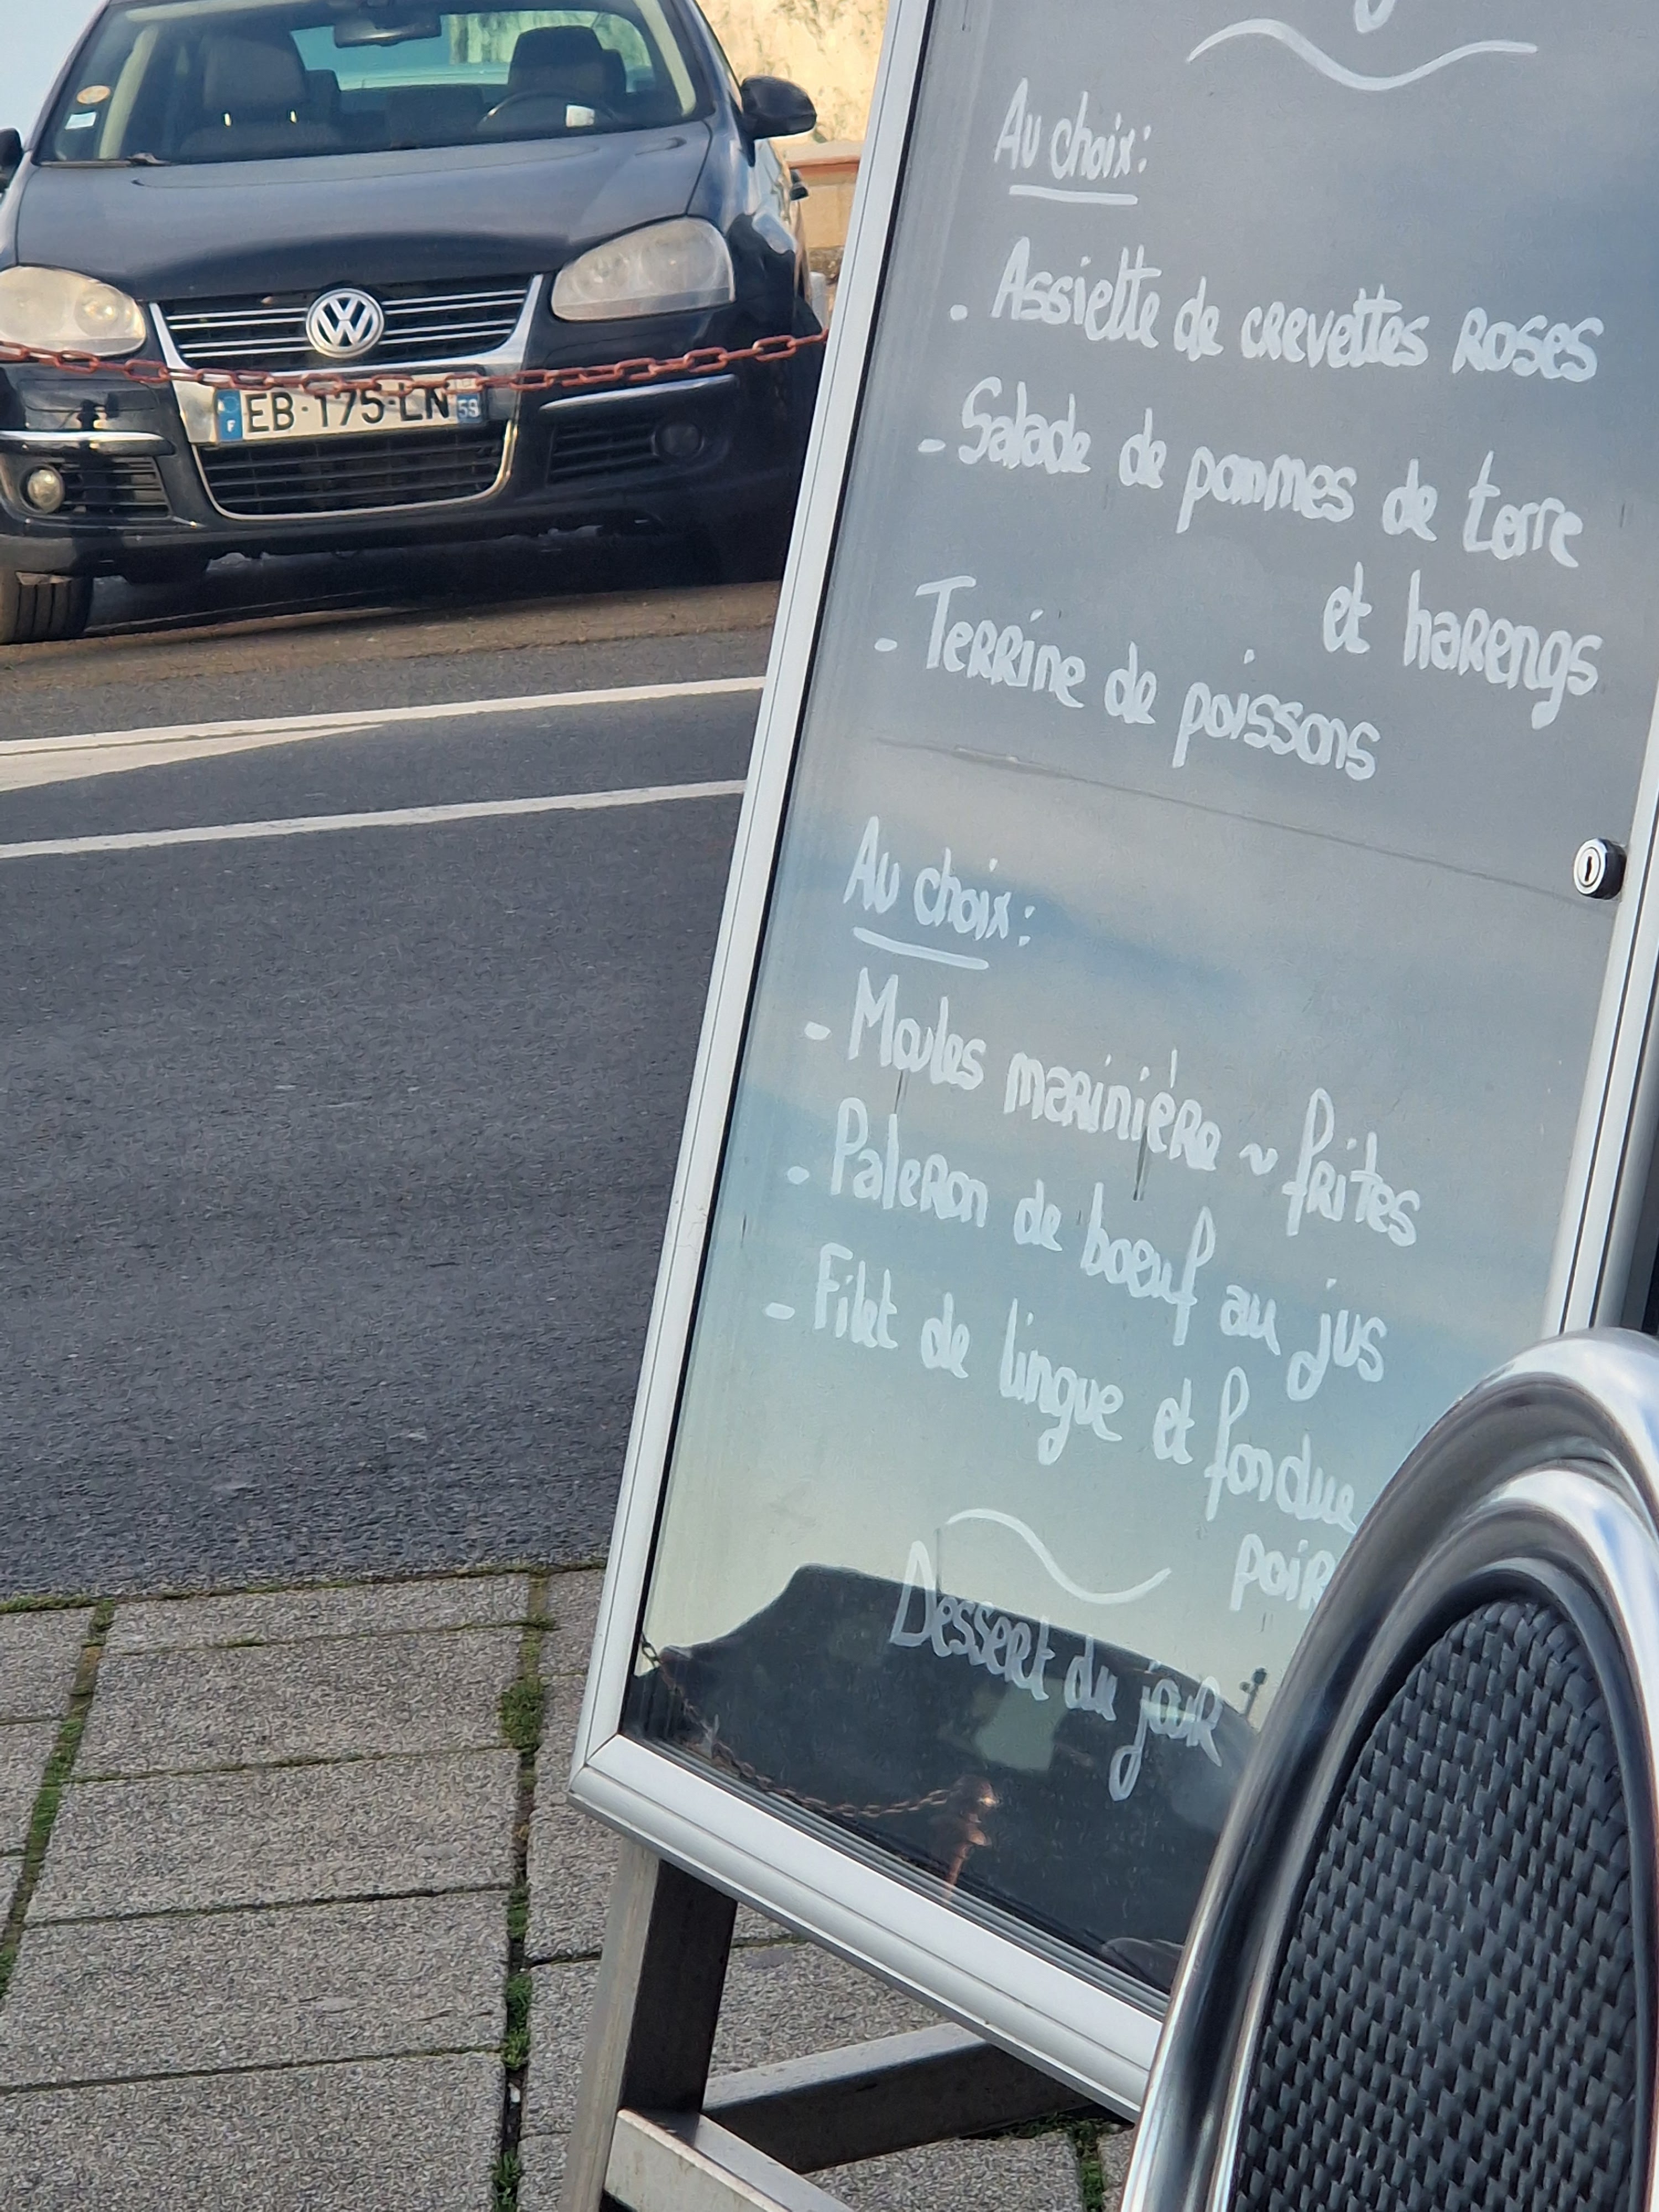 Au choix:
. Assiette de crevettes ROSES
- Salade de pommes de terre
et harengs
- Terrine de poissons
Au choix:
- Moules marinière ~ frites
- Paleron de boeuf au jus
- Filet de lingue et fondue
Dessert du jour
VW
F EB-175-LN 59